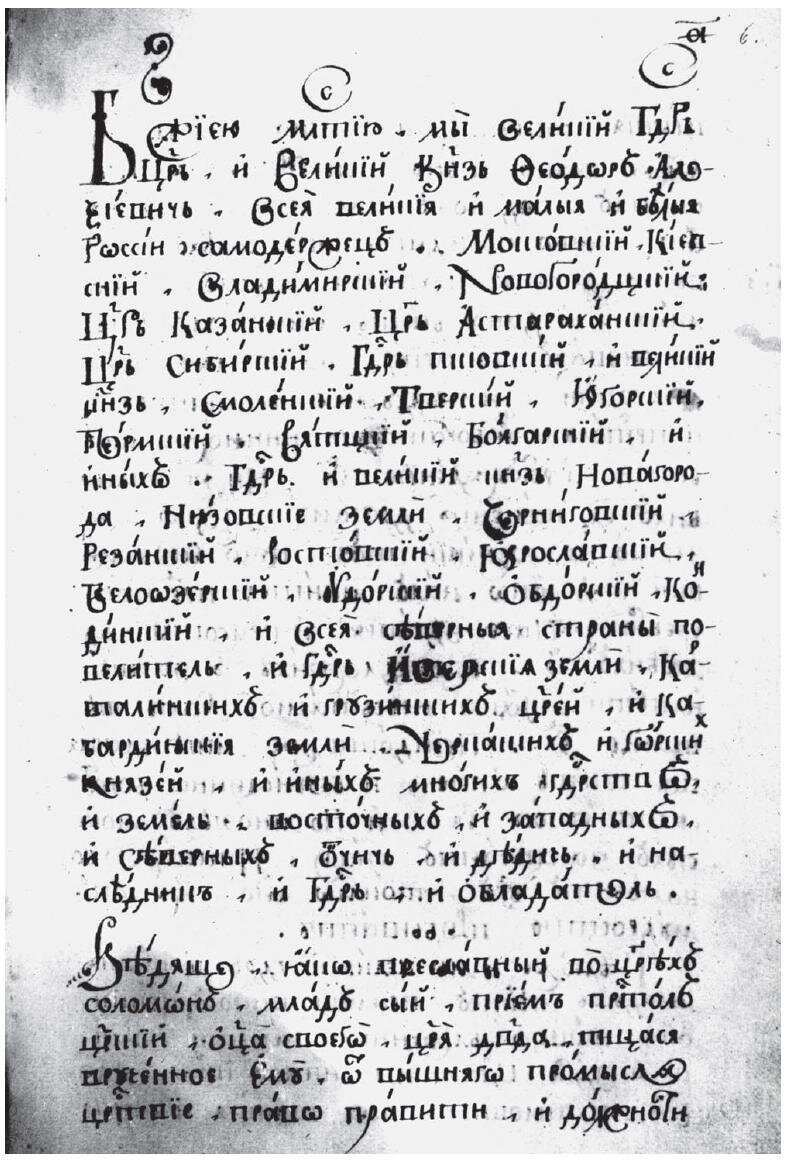 а҃ 6.
с с
Бж҃їею млⷭ҇тїю . мы̀ вели́кїй Гдⷭ҇рь
Цр҃ь , и҆ Вели́кїй Кн҃зь Ѳео́дѡръ Але-
ѯїе́вичь . Всея̀ вели́кїя и҆ ма́лыя и҆ бѣ́лыя
Рѡссі́и , самоде́ржецъ . Моско́вскїй , Кі́ев-
скїй , Влади́мирскїй , Новогоро́дцкїй ,
Цр҃ь Каза́нскїй , Цр҃ь А҆страха́нскїй ,
Цр҃ь Сиби́рскїй , Гдⷭ҇рь пско́вскїй , и҆ вели́кїй
кн҃зь , Смоле́нскїй , Тве́рскїй , Ю҆го́рскїй ,
Пе́рмскїй , Вя́тцкїй , Болга́рскїй , и҆
и҆ны́хъ . Гдⷭ҇рь и҆ вели́кїй кн҃зь Нова́горо-
да , Ни́зовскїе землѝ , Черни́говскїй ,
Реза́нскїй , Росто́вскїй , Я҆росла́вскїй ,
Белоѡзе́рскїй , Оу҆до́рскїй , Ѻ҆бдо́рскїй , Ко-
ди́нскїй , и҆ всея̀ сѣ́верныя страны̀ по-
вели́тель , и҆ Гдⷭ҇рь И҆́верскїя землѝ , Ка-
тали́нскихъ и҆ грузи́нскихъ цр҃е́й , и҆ Ка-
барди́нскїя землѝ , Черка́скихъ и҆ го́рскихъ
Князе́й , и҆ и҆ны́хъ мно́гихъ гдⷭ҇рствъ ,
и҆ земе́ль , восто́чныхъ , и҆ за́падныхъ ,
и҆ сѣ́верныхъ , ѻ҆́тчичь , и҆ дѣ́дичь , и҆ на-
слѣ́дникъ , и҆ Гдⷭ҇рь , и҆ ѻ҆блада́тель .
Вѣ́дяще , ꙗ҆́кѡ пресла́вный во цр҃ѣ́хъ
соломѡ́нъ , мла́дъ сы́й , прїе́мъ престо́лъ
цр҃скїй , ѻ҆ц҃а̀ своегѡ̀ , цр҃я̀ дв҃да , тща́ся
врꙋче́нное є҆мꙋ̀ , ѿ вы́шнягѡ про́мысла
црⷭ҇твїе , пра́вѡ пра́вити , и҆ до́лжности